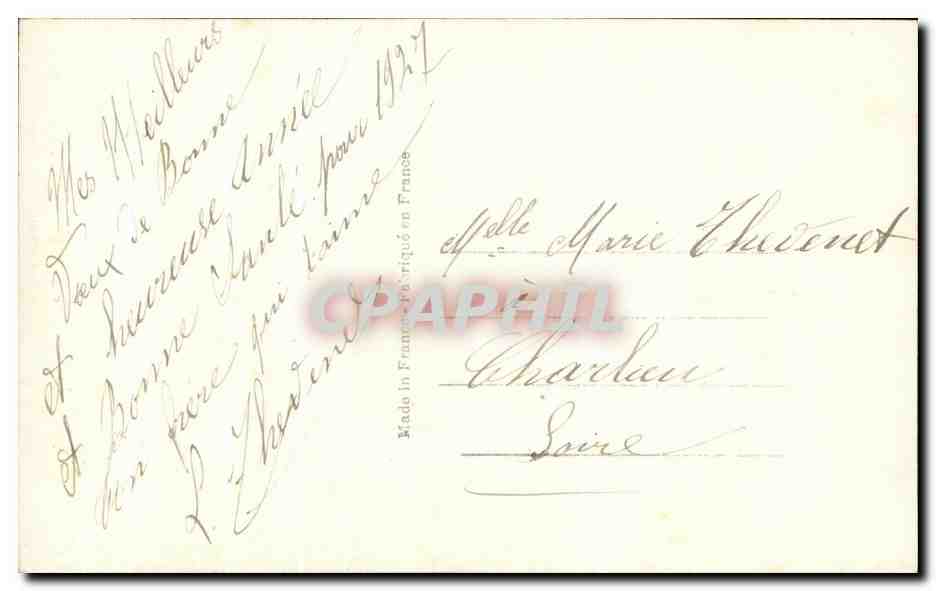 Mes Meilleurs
Vœux de Bonne
et heureuse année
et Bonne Santé pour 1927
ton frère qui t'aime
L. Thevenet
Made in France - Fabriqué en France
Melle Marie Thevenet
à
Charlieu
Loire
CPAPHIL